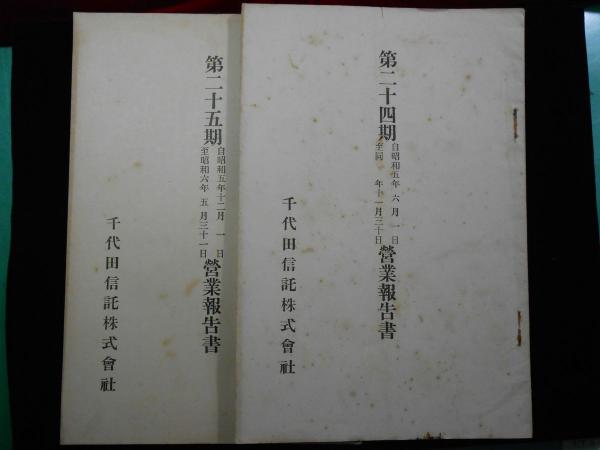 第二十四期
自昭和五年 六月 一日
至同 年十一月三十日
營業報告書
千代田信託株式會社
第二十五期
自昭和五年十二月 一日
至昭和六年 五月三十一日
營業報告書
千代田信託株式會社